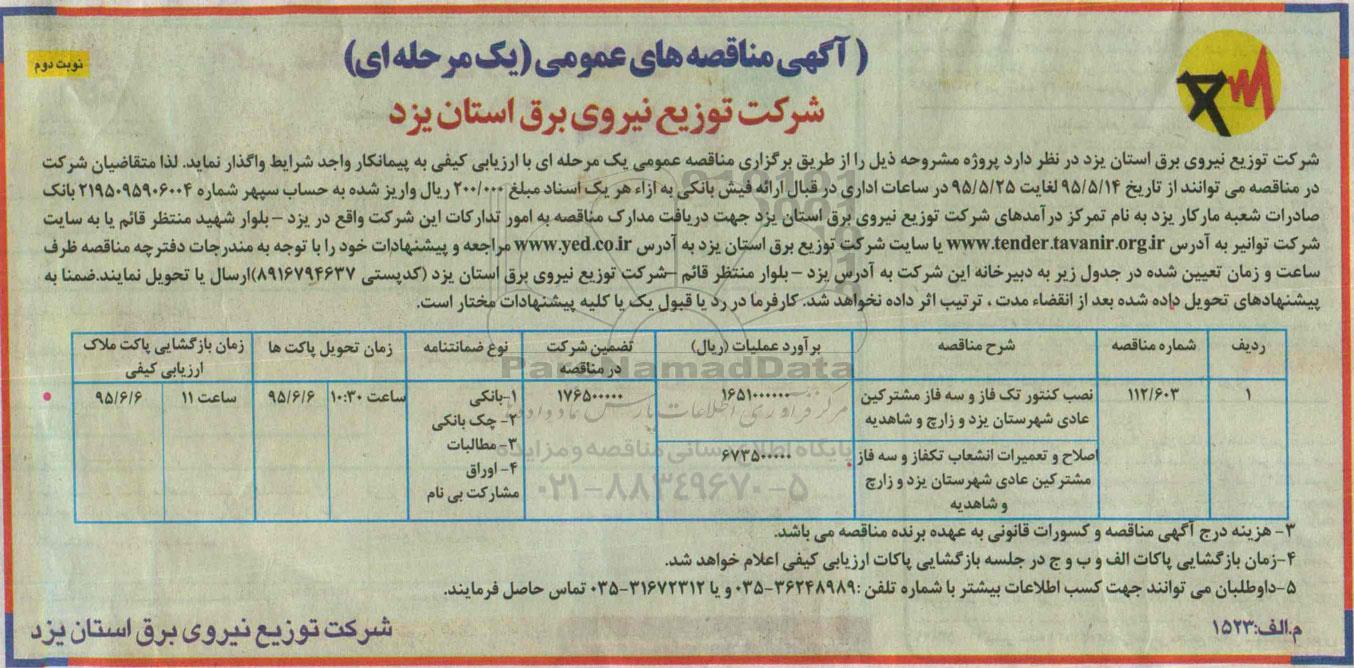 ( آگهی مناقصه های عمومی (یک مرحله ای)
نوبت دوم
شرکت توزیع نیروی برق استان یزد
شرکت توزیع نیروی برق استان یزد در نظر دارد پروژه مشروحه ذیل را از طریق برگزاری مناقصه عمومی یک مرحله ای با ارزیابی کیفی به پیمانکار واجد شرایط واگذار نماید. لذا متقاضیان شرکت
در مناقصه می توانند از تاریخ ۹۵/۵/۱۴ لغایت ۹۵/۵/۲۵ در ساعات اداری در قبال ارائه فیش بانکی به ازاء هر یک اسناد مبلغ ۲۰۰/۰۰۰ ریال واریز شده به حساب سپهر شماره ۲۱۹۵۰۹۵۹۰۶۰۰۴ بانک
صادرات شعبه مارکار یزد به نام تمرکز درآمدهای شرکت توزیع نیروی برق استان یزد جهت دریافت مدارک مناقصه به امور تدارکات این شرکت واقع در یزد – بلوار شهید منتظر قائم یا به سایت
شرکت توانیر به آدرس www.tender.tavanir.org.ir یا سایت شرکت توزیع برق استان یزد به آدرس www.yed.co.ir مراجعه و پیشنهادات خود را با توجه به مندرجات دفترچه مناقصه ظرف
ساعت و زمان تعیین شده در جدول زیر به دبیرخانه این شرکت به آدرس یزد – بلوار منتظر قائم –شرکت توزیع نیروی برق استان یزد (کدپستی ۸۹۱۶۷۹۴۶۳۷)ارسال یا تحویل نمایند.ضمنا به
پیشنهادهای تحویل داده شده بعد از انقضاء مدت ، ترتیب اثر داده نخواهد شد. کارفرما در رد یا قبول یک یا کلیه پیشنهادات مختار است.
ردیف شماره مناقصه شرح مناقصه برآورد عملیات (ریال) تضمین شرکت نوع ضمانتنامه زمان تحویل پاکت ها زمان بازگشایی پاکت ملاک
در مناقصه ارزیابی کیفی
۱ ۱۱۲/۶۰۳ نصب کنتور تک فاز و سه فاز مشترکین ۱۶۵۱۰۰۰۰۰۰ ۱۷۶۵۰۰۰۰۰ ۱-بانکی ساعت ۱۰:۳۰ ۹۵/۶/۶ ساعت ۱۱ ۹۵/۶/۶
عادی شهرستان یزد و زارچ و شاهدیه ۲- چک بانکی
اصلاح و تعمیرات انشعاب تکفاز و سه فاز ۶۷۳۵۰۰۰۰۰ ۳- مطالبات
مشترکین عادی شهرستان یزد و زارچ ۴- اوراق
و شاهدیه مشارکت بی نام
۳- هزینه درج آگهی مناقصه و کسورات قانونی به عهده برنده مناقصه می باشد.
۴-زمان بازگشایی پاکات الف و ب و ج در جلسه بازگشایی پاکات ارزیابی کیفی اعلام خواهد شد.
۵-داوطلبان می توانند جهت کسب اطلاعات بیشتر با شماره تلفن :۳۶۲۴۸۹۸۹-۰۳۵ و یا ۳۱۶۷۲۳۱۲-۰۳۵ تماس حاصل فرمایند.
م.الف:۱۵۲۳
شرکت توزیع نیروی برق استان یزد
ParsNamadData
پایگاه اطلاع رسانی مناقصه و مزایده
۰۲۱-۸۸۳۴۹۶۷۰-۵